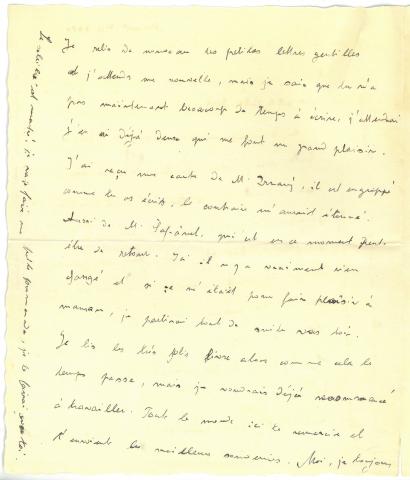 Je relis de nouveau tes petites lettres gentilles
et j'attends une nouvelle, mais je sais que tu n'a
pas maintenant beaucoup de temps à écrire, j'attendrai
j'en ai déjà deux qui me font un grand plaisir.
J'ai reçu une carte de M. il est engrippé
comme tu as écrit, le contraire m'aurait étonné.
Aussi de M. qui est en ce moment peut-
être de retour. Ici il n'y a vraiment rien
changé et si ce n'était pour faire plaisir à
maman, je partirai tout de suite vers toi.
Je lis les très jolis livres alors comme cela le
temps passe, mais je voudrais déjà recommencé
à travailler. Tout le monde ici te remercie et
t'envoient les meilleurs souvenirs. Moi, je toujours
Le soleil est je vais faire une petite promenade, je la ferai avec toi.